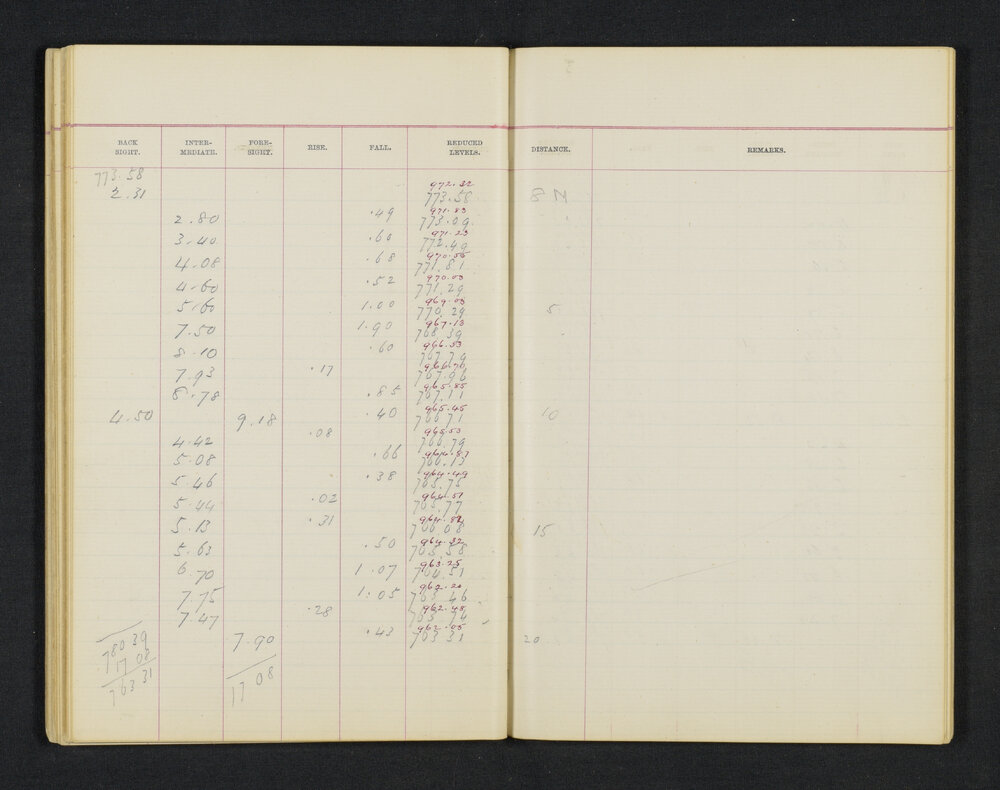 BACK SIGHT. INTER-MEDIATE. FORE-SIGHT. RISE. FALL. REDUCED LEVELS. DISTANCE. REMARKS.
773.58
972.32
2.31 773.58
971.83
2.80 .49 773.09
971.23
3.40 .60 772.49
970.55
4.08 .68 771.81
970.03
4.60 .52 771.29
969.03
5.60 1.00 770.29 5
967.13
7.50 1.90 768.39
966.53
8.10 .60 767.79
966.70
7.93 .17 767.96
965.85
8.78 .85 767.11
965.45
4.50 9.18 .40 766.71 10
965.53
4.42 .08 766.79
964.87
5.08 .66 766.13
964.49
5.46 .38 765.75
964.51
5.44 .02 765.77
964.82
5.13 .31 766.08 15
964.32
5.63 .50 765.58
963.25
6.70 1.07 764.51
962.20
7.75 1.05 763.46
962.48
7.47 .28 763.74
962.05
7.90 .43 763.31 20
780 39
17 08
763 31
17 08